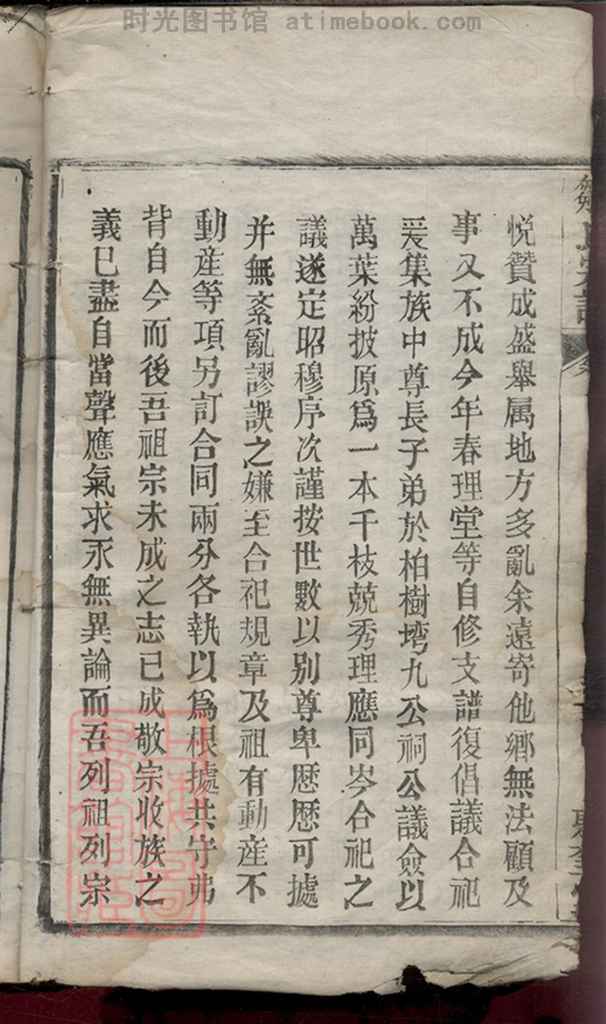 时光图书馆 atimebook.com
悦贊成盛舉属地方多亂余遠寄他鄉無法顧及
事又不成今年春理堂等自修支譜復倡議合祀
爰集族中尊長子弟於柏樹塆九公祠公議僉以
萬葉紛披原爲一本千枝競秀理應同岑合祀之
議遂定昭穆序次謹按世數以别尊卑歷歷可據
并無紊亂謬誤之嫌至合祀規章及祖有動産不
動産等項另訂合同兩分各執以爲根據共守弗
背自今而後吾祖宗未成之志已成敬宗收族之
義已盡自當聲應氣求永無異論而吾列祖列宗